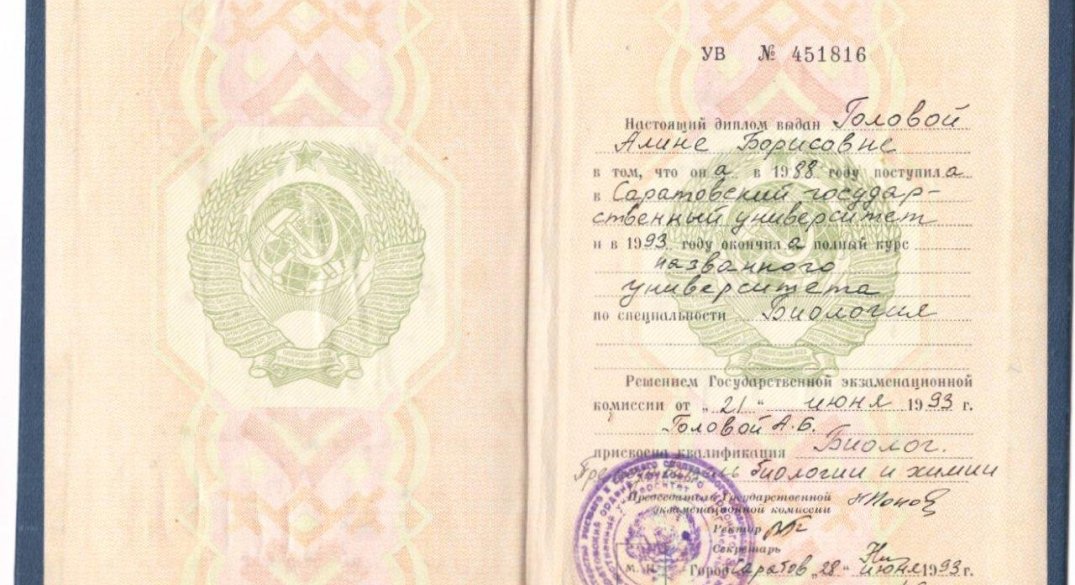 УВ № 451816
Настоящий диплом выдан Головой
Алине Борисовне
в том, что она в 1988 году поступила
в Саратовский государ-
ственный университет
и в 1993 году окончила полный курс
названного
университета
по специальности Биология
Решением Государственной экзаменационной
комиссии от „21" июня 1993 г.
Головой А.Б.
присвоена квалификация Биолог.
биологии и химии
Председатель Государственной
экзаменационной комиссии
Ректор
Секретарь
Город Саратов „28" июня 1993 г.